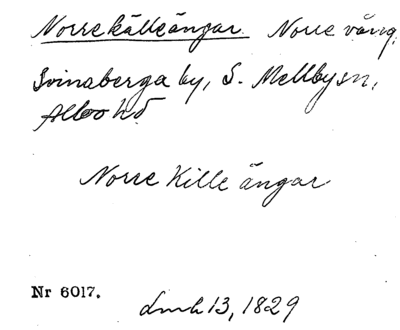 Norrekälleängar. Norre vång.
Svinaberga by, S. Mellby sn,
Albo hd
Norre Kille ängar
Nr 6017.
Lmh 13, 1829